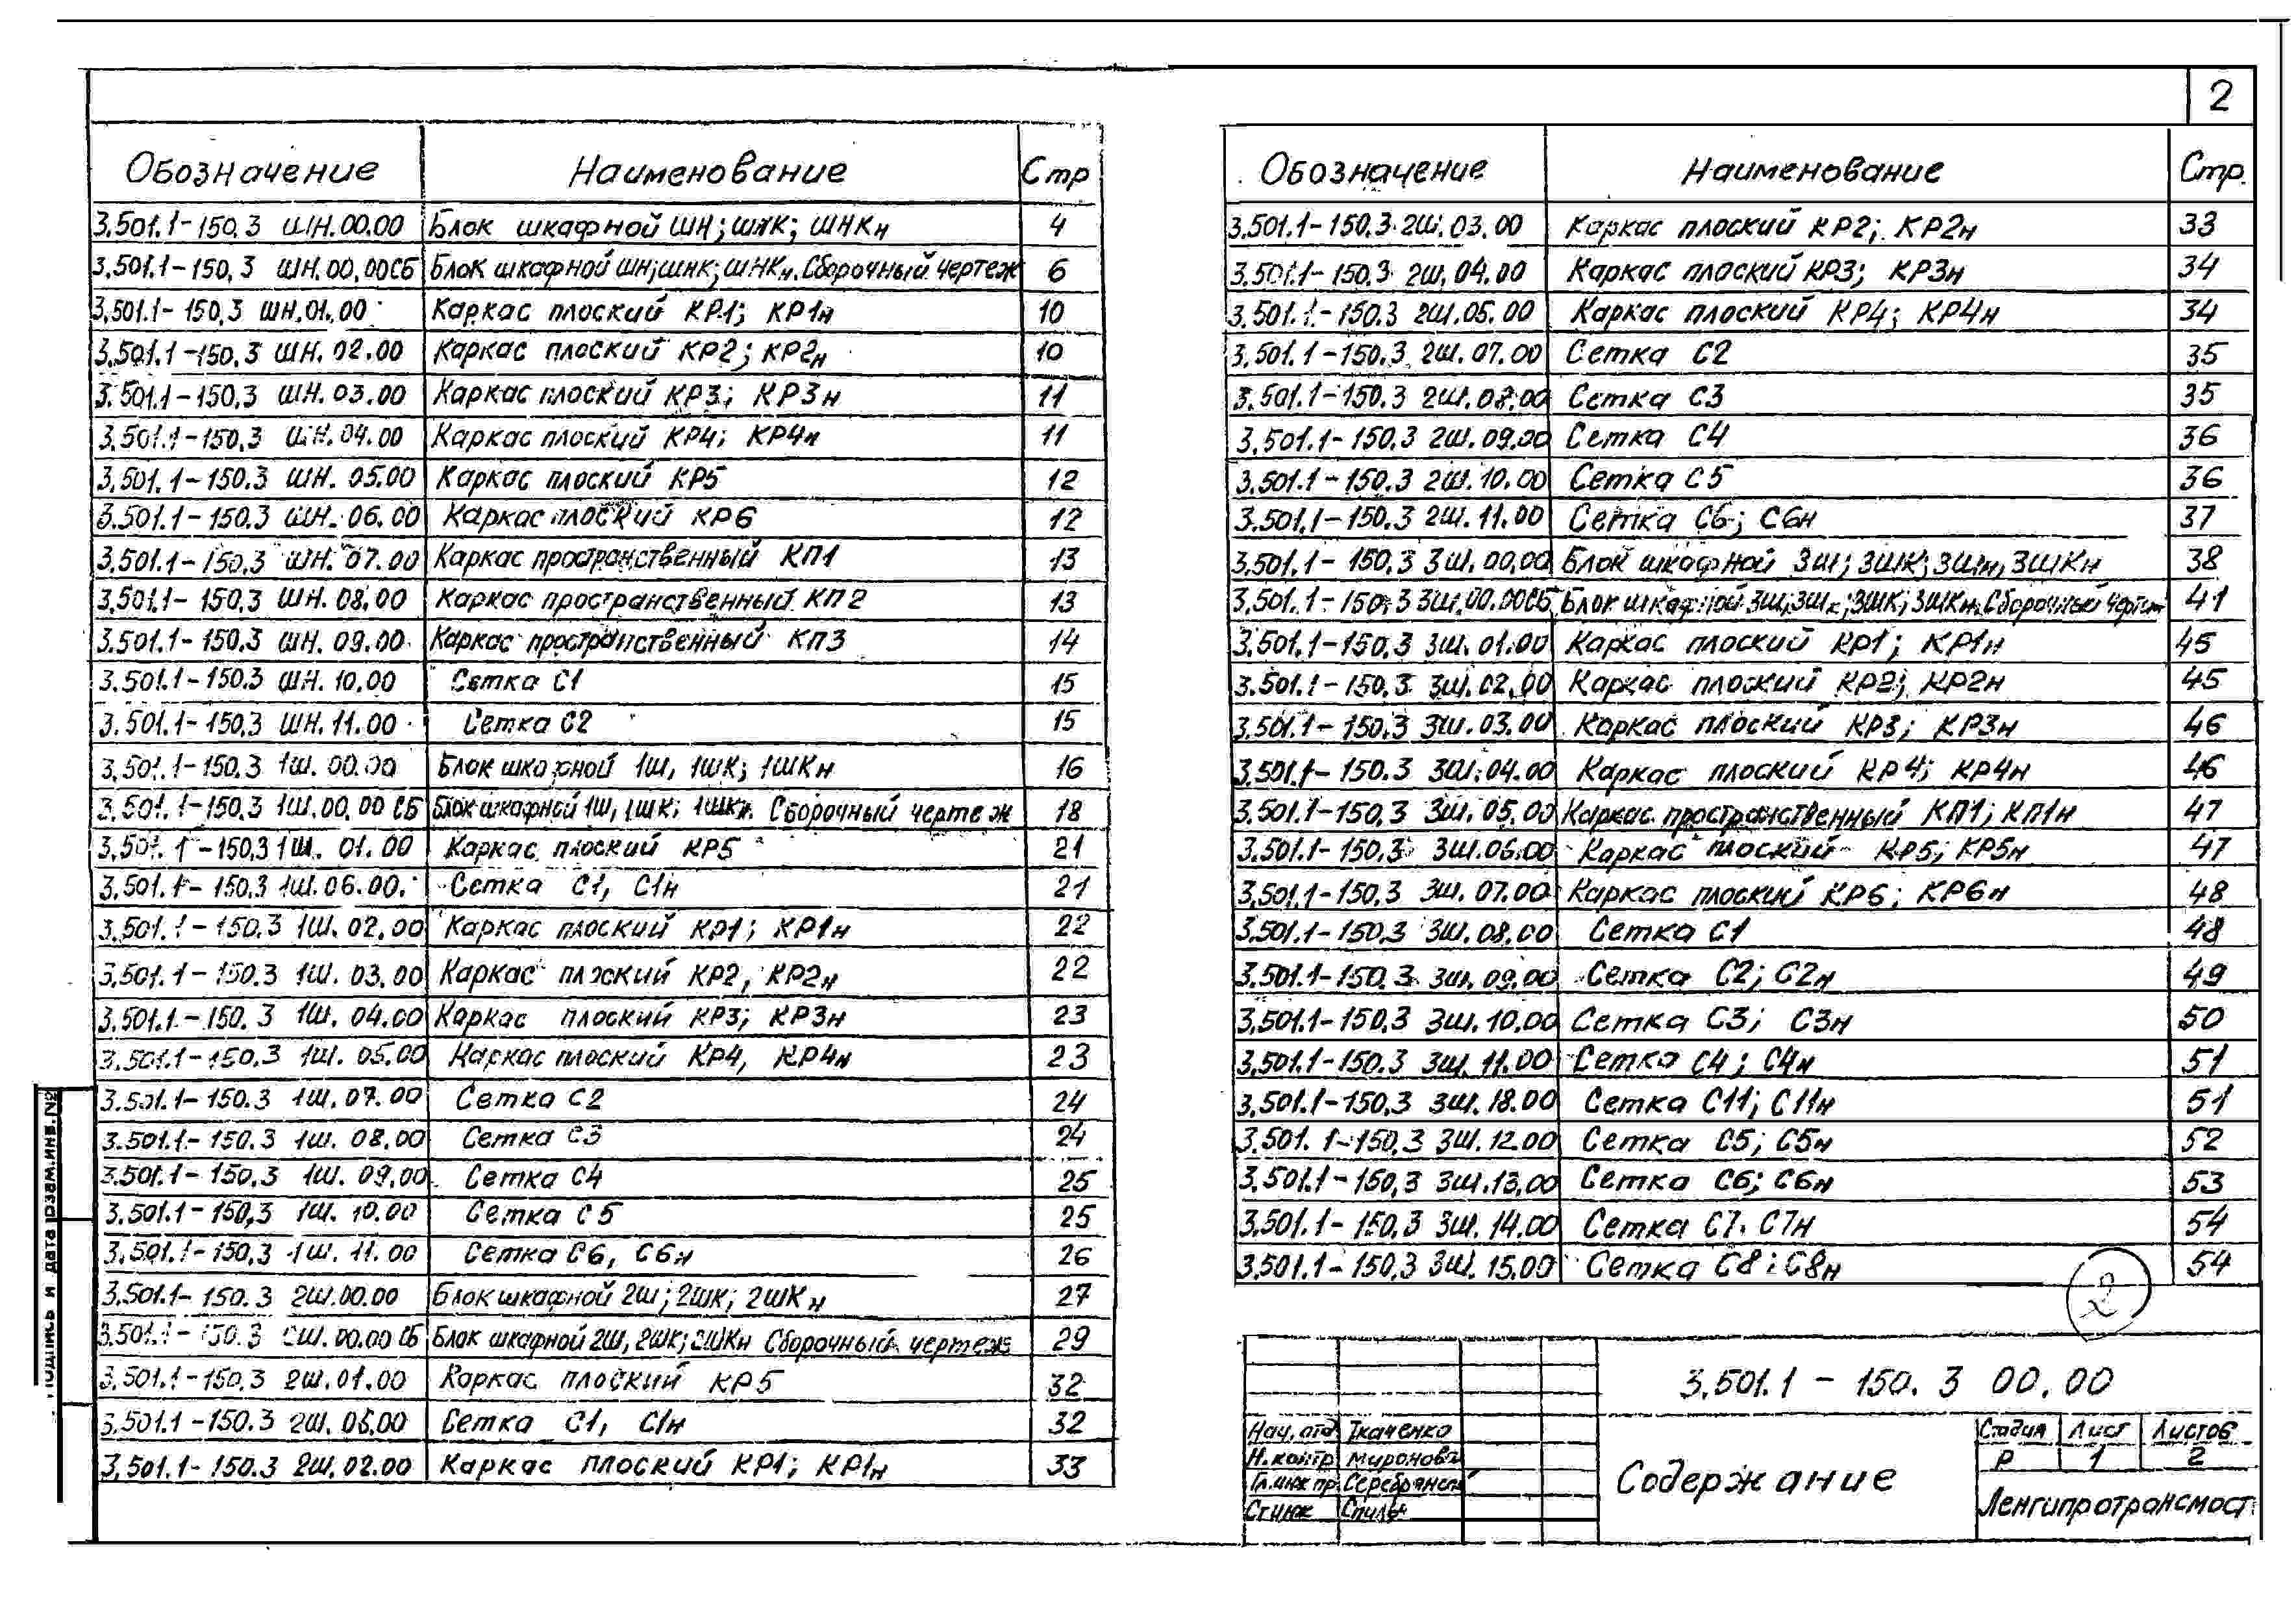 2
Обозначение Наименование Стр
3.501.1-150.3 ШН.00.00 Блок шкафной ШН; ШНК; ШНКн 4
3.501.1-150.3 ШН.00.00СБ Блок шкафной ШН; ШНК; ШНКн. Сборочный чертеж 6
3.501.1-150.3 ШН.01.00 Каркас плоский КР1; КР1н 10
3.501.1-150.3 ШН.02.00 Каркас плоский КР2; КР2н 10
3.501.1-150.3 ШН.03.00 Каркас плоский КР3; КР3н 11
3.501.1-150.3 ШН.04.00 Каркас плоский КР4; КР4н 11
3.501.1-150.3 ШН.05.00 Каркас плоский КР5 12
3.501.1-150.3 ШН.06.00 Каркас плоский КР6 12
3.501.1-150.3 ШН.07.00 Каркас пространственный КП1 13
3.501.1-150.3 ШН.08.00 Каркас пространственный КП2 13
3.501.1-150.3 ШН.09.00 Каркас пространственный КП3 14
3.501.1-150.3 ШН.10.00 Сетка С1 15
3.501.1-150.3 ШН.11.00 Сетка С2 15
3.501.1-150.3 1Ш.00.00 Блок шкафной 1Ш, 1ШК; 1ШКн 16
3.501.1-150.3 1Ш.00.00 СБ Блок шкафной 1Ш, 1ШК; 1ШКн. Сборочный чертеж 18
3.501.1-150.3 1Ш.01.00 Каркас плоский КР5 21
3.501.1-150.3 1Ш.06.00. Сетка С1, С1н 21
3.501.1-150.3 1Ш.02.00 Каркас плоский КР1; КР1н 22
3.501.1-150.3 1Ш.03.00 Каркас плоский КР2, КР2н 22
3.501.1-150.3 1Ш.04.00 Каркас плоский КР3; КР3н 23
3.501.1-150.3 1Ш.05.00 Каркас плоский КР4, КР4н 23
3.501.1-150.3 1Ш.07.00 Сетка С2 24
3.501.1-150.3 1Ш.08.00 Сетка С3 24
3.501.1-150.3 1Ш.09.00 Сетка С4 25
3.501.1-150.3 1Ш.10.00 Сетка С5 25
3.501.1-150.3 1Ш.11.00 Сетка С6, С6н 26
3.501.1-150.3 2Ш.00.00 Блок шкафной 2Ш; 2ШК; 2ШКн 27
3.501.1-150.3 2Ш.00.00 СБ Блок шкафной 2Ш, 2ШК; 2ШКн Сборочный чертеж 29
3.501.1-150.3 2Ш.01.00 Каркас плоский КР5 32
3.501.1-150.3 2Ш.06.00 Сетка С1, С1н 32
3.501.1-150.3 2Ш.02.00 Каркас плоский КР1; КР1н 33
Обозначение Наименование Стр.
3.501.1-150.3 2Ш.03.00 Каркас плоский КР2; КР2н 33
3.501.1-150.3 2Ш.04.00 Каркас плоский КР3; КР3н 34
3.501.1-150.3 2Ш.05.00 Каркас плоский КР4; КР4н 34
3.501.1-150.3 2Ш.07.00 Сетка С2 35
3.501.1-150.3 2Ш.08.00 Сетка С3 35
3.501.1-150.3 2Ш.09.00 Сетка С4 36
3.501.1-150.3 2Ш.10.00 Сетка С5 36
3.501.1-150.3 2Ш.11.00 Сетка С6; С6н 37
3.501.1-150.3 3Ш.00.00 Блок шкафной 3Ш; 3ШК; 3Шн, 3ШКн 38
3.501.1-150.3 3Ш.00.00СБ Блок шкафной 3Ш; 3Шн; 3ШК; 3ШКн. Сборочный черт 41
3.501.1-150.3 3Ш.01.00 Каркас плоский КР1; КР1н 45
3.501.1-150.3 3Ш.02.00 Каркас плоский КР2; КР2н 45
3.501.1-150.3 3Ш.03.00 Каркас плоский КР3; КР3н 46
3.501.1-150.3 3Ш.04.00 Каркас плоский КР4; КР4н 46
3.501.1-150.3 3Ш.05.00 Каркас пространственный КП1; КП1н 47
3.501.1-150.3 3Ш.06.00 Каркас плоский КР5; КР5н 47
3.501.1-150.3 3Ш.07.00 Каркас плоский КР6; КР6н 48
3.501.1-150.3 3Ш.08.00 Сетка С1 48
3.501.1-150.3 3Ш.09.00 Сетка С2; С2н 49
3.501.1-150.3 3Ш.10.00 Сетка С3; С3н 50
3.501.1-150.3 3Ш.11.00 Сетка С4; С4н 51
3.501.1-150.3 3Ш.18.00 Сетка С11; С11н 51
3.501.1-150.3 3Ш.12.00 Сетка С5; С5н 52
3.501.1-150.3 3Ш.13.00 Сетка С6; С6н 53
3.501.1-150.3 3Ш.14.00 Сетка С7. С7н 54
3.501.1-150.3 3Ш.15.00 Сетка С8; С8н 54
2
3.501.1-150.3 00.00
Нач.отд Ткаченко
Н.контр Миронова
Гл.инж пр. Серебрянск
Ст инж
Содержание
Стадия Лист Листов
Р 1 2
Ленгипротрансмост
подпись и дата взам.инв.№